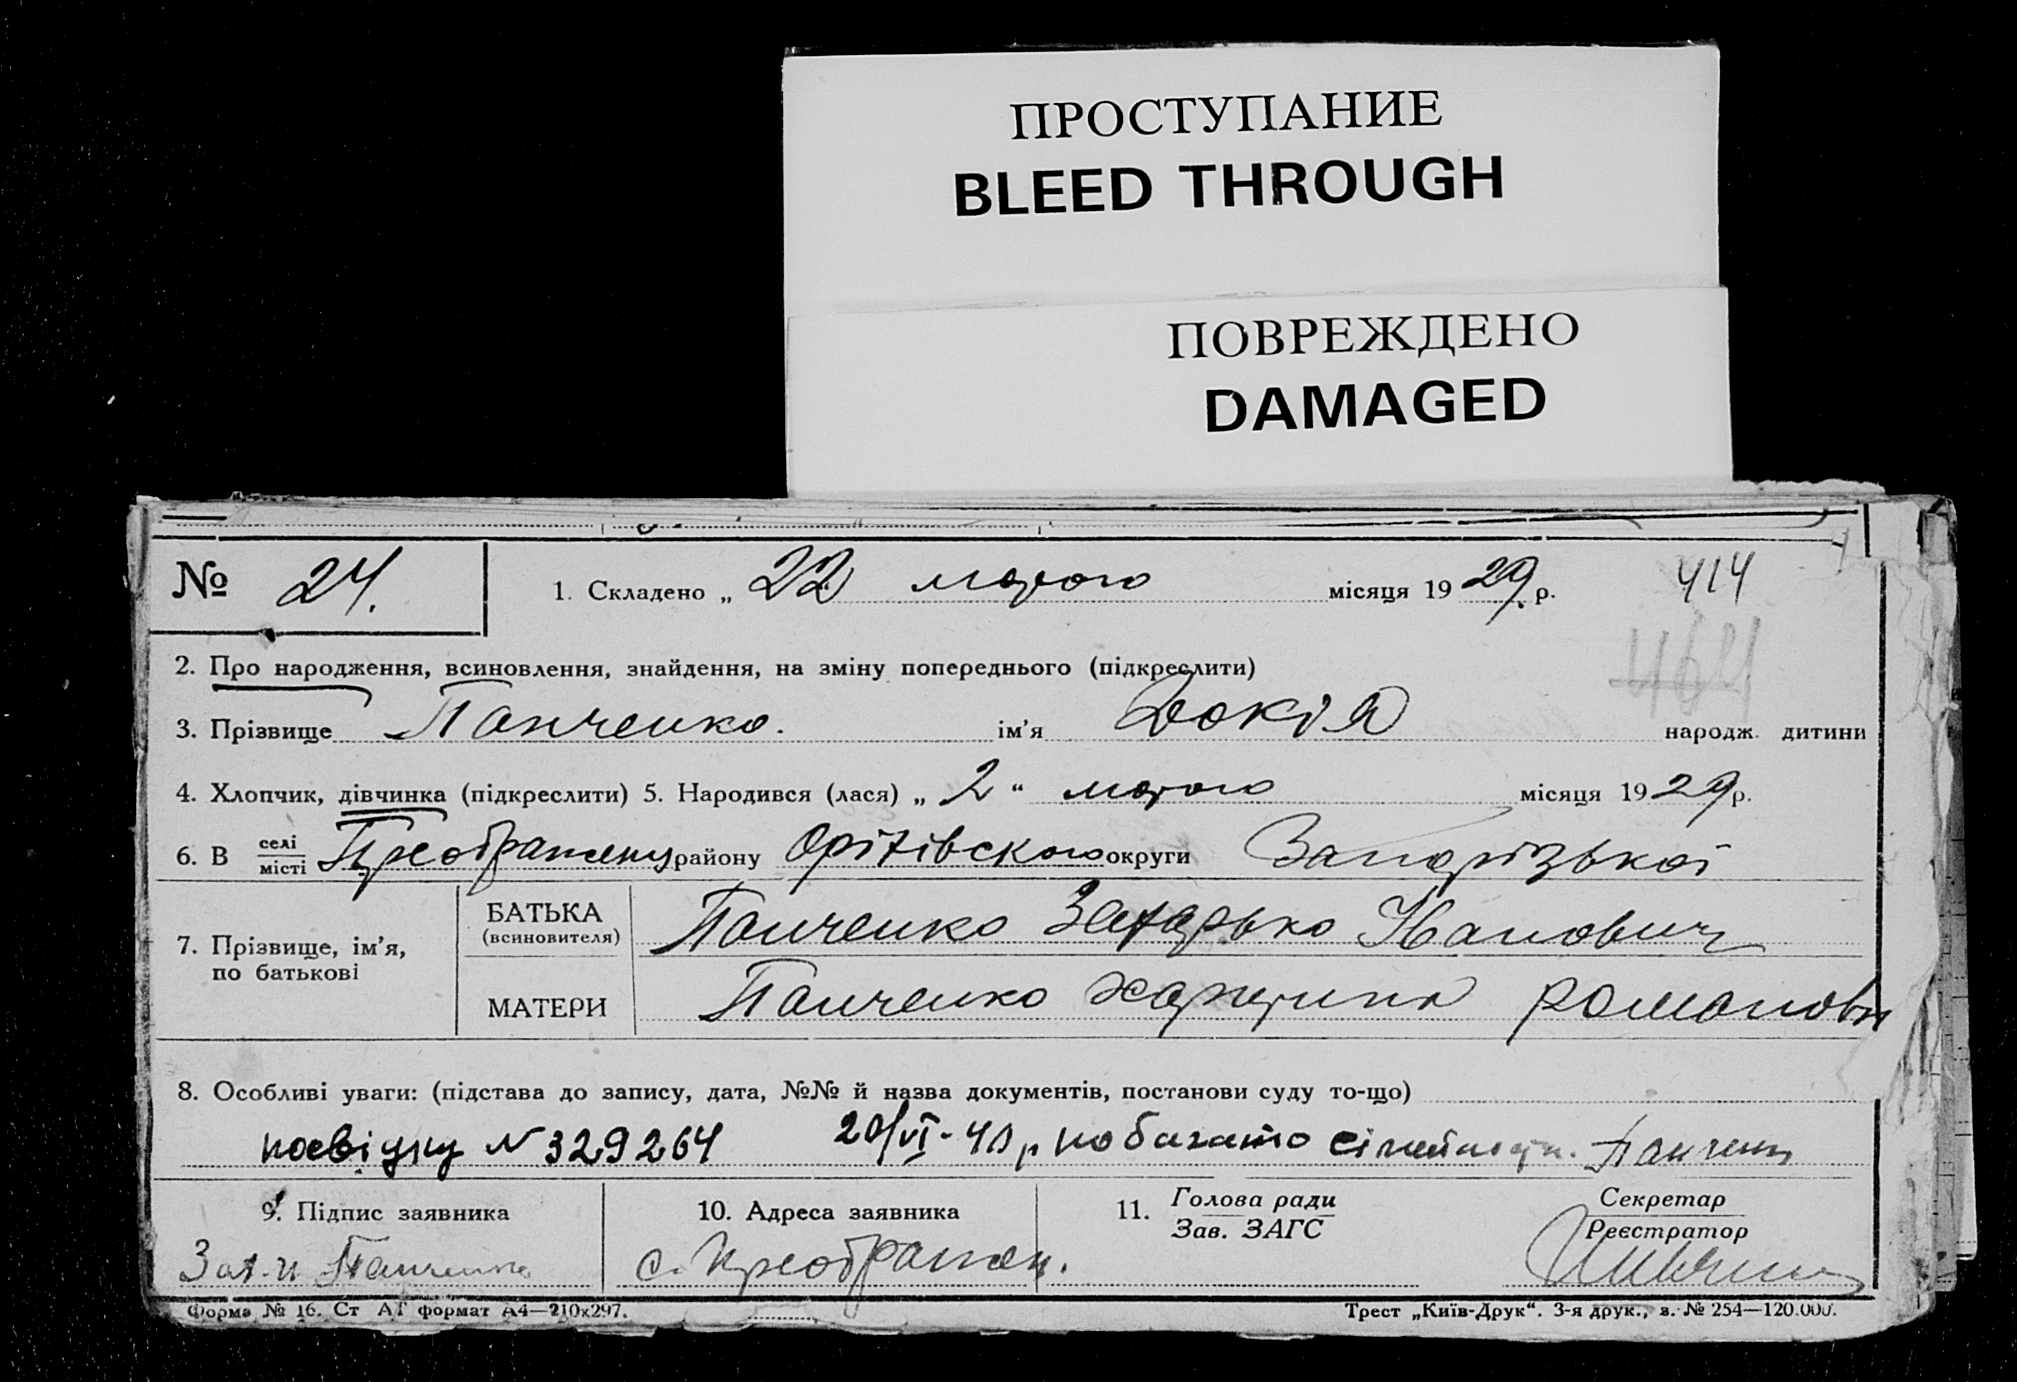 ПРОСТУПАНИЕ
BLEED THROUGH
ПОВРЕЖДЕНО
DAMAGED
№ 24. 1. Складено „ 22 лютого місяця 1929 р. 414
464
2. Про народження, всиновлення, знайдення, на зміну попереднього (підкреслити)
3. Прізвище Панченко. ім'я Докія народж. дитини
4. Хлопчик, дівчинка (підкреслити) 5. Народився (лася) „ 2 “ лютого місяця 1929 р.
6. В селі/місті Преображену району Оріхівського округи Запорізької
7. Прізвище, ім'я, по батькові
БАТЬКА (всиновителя) Панченко Захарько Іванович
МАТЕРИ Панченко Харитина Романовн
8. Особливі уваги: (підстава до запису, дата, №№ й назва документів, постанови суду то-що)
посвідку N 329264 20/VI-40 р по багато сімейност. Панченк
9. Підпис заявника 10. Адреса заявника 11. Голова ради Зав. ЗАГС Секретар Реєстратор
Зах. И Панченко с. Преображен.
Форма № 16. Ст АГ формат А4—210х297. Трест „Київ-Друк“. 3-я друк., з. № 254—120.000.